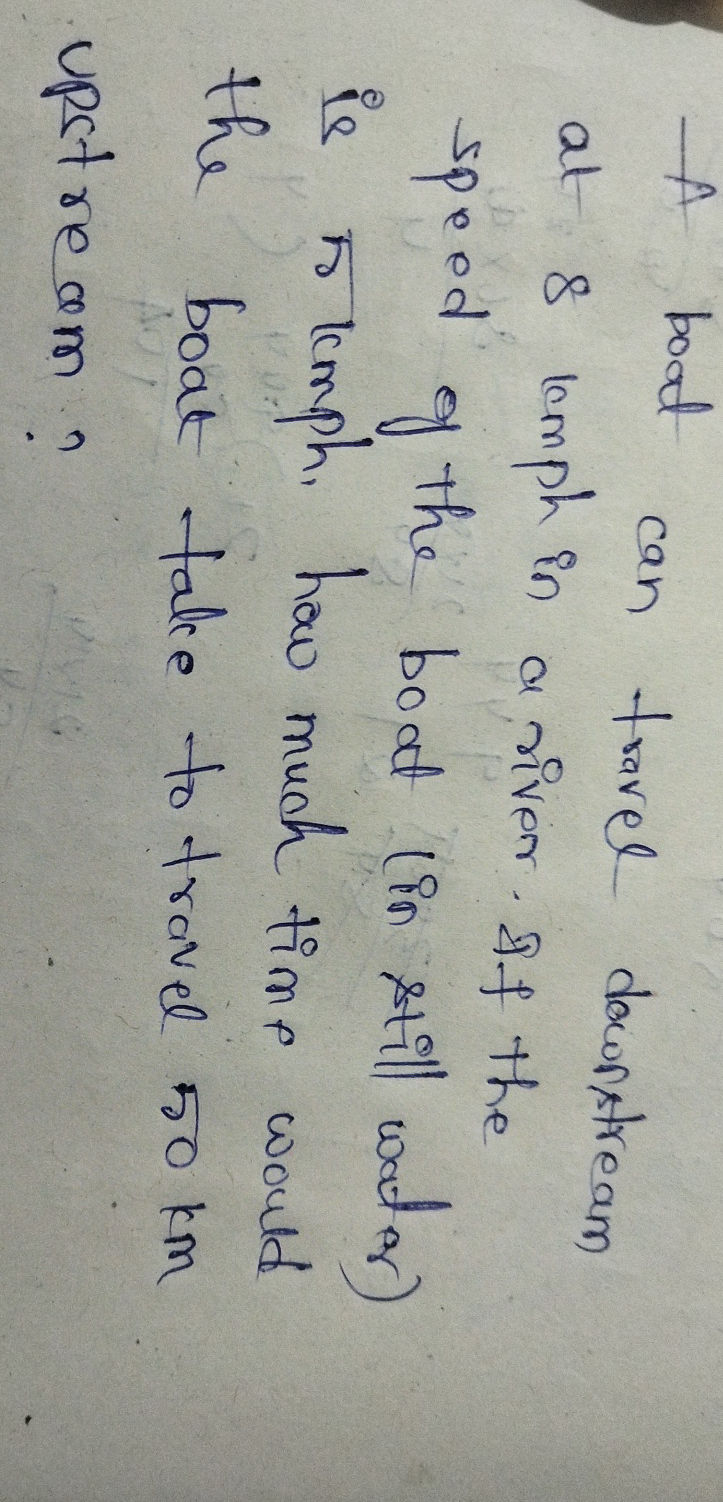 A boat can travel downstream
at 8 kmph in a river. If the
speed of the boat (in still water)
is 5 kmph, how much time would
the boat take to travel 50 km
upstream?